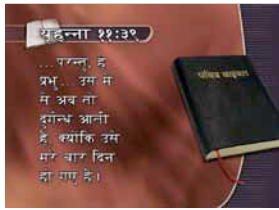 यूहन्ना ११:३९
... परन्तु, हे
प्रभु... उस में
से अब तो
दुर्गन्ध आती
है, क्योंकि उसे
मरे चार दिन
हो गए हैं।
पवित्र बाइबल